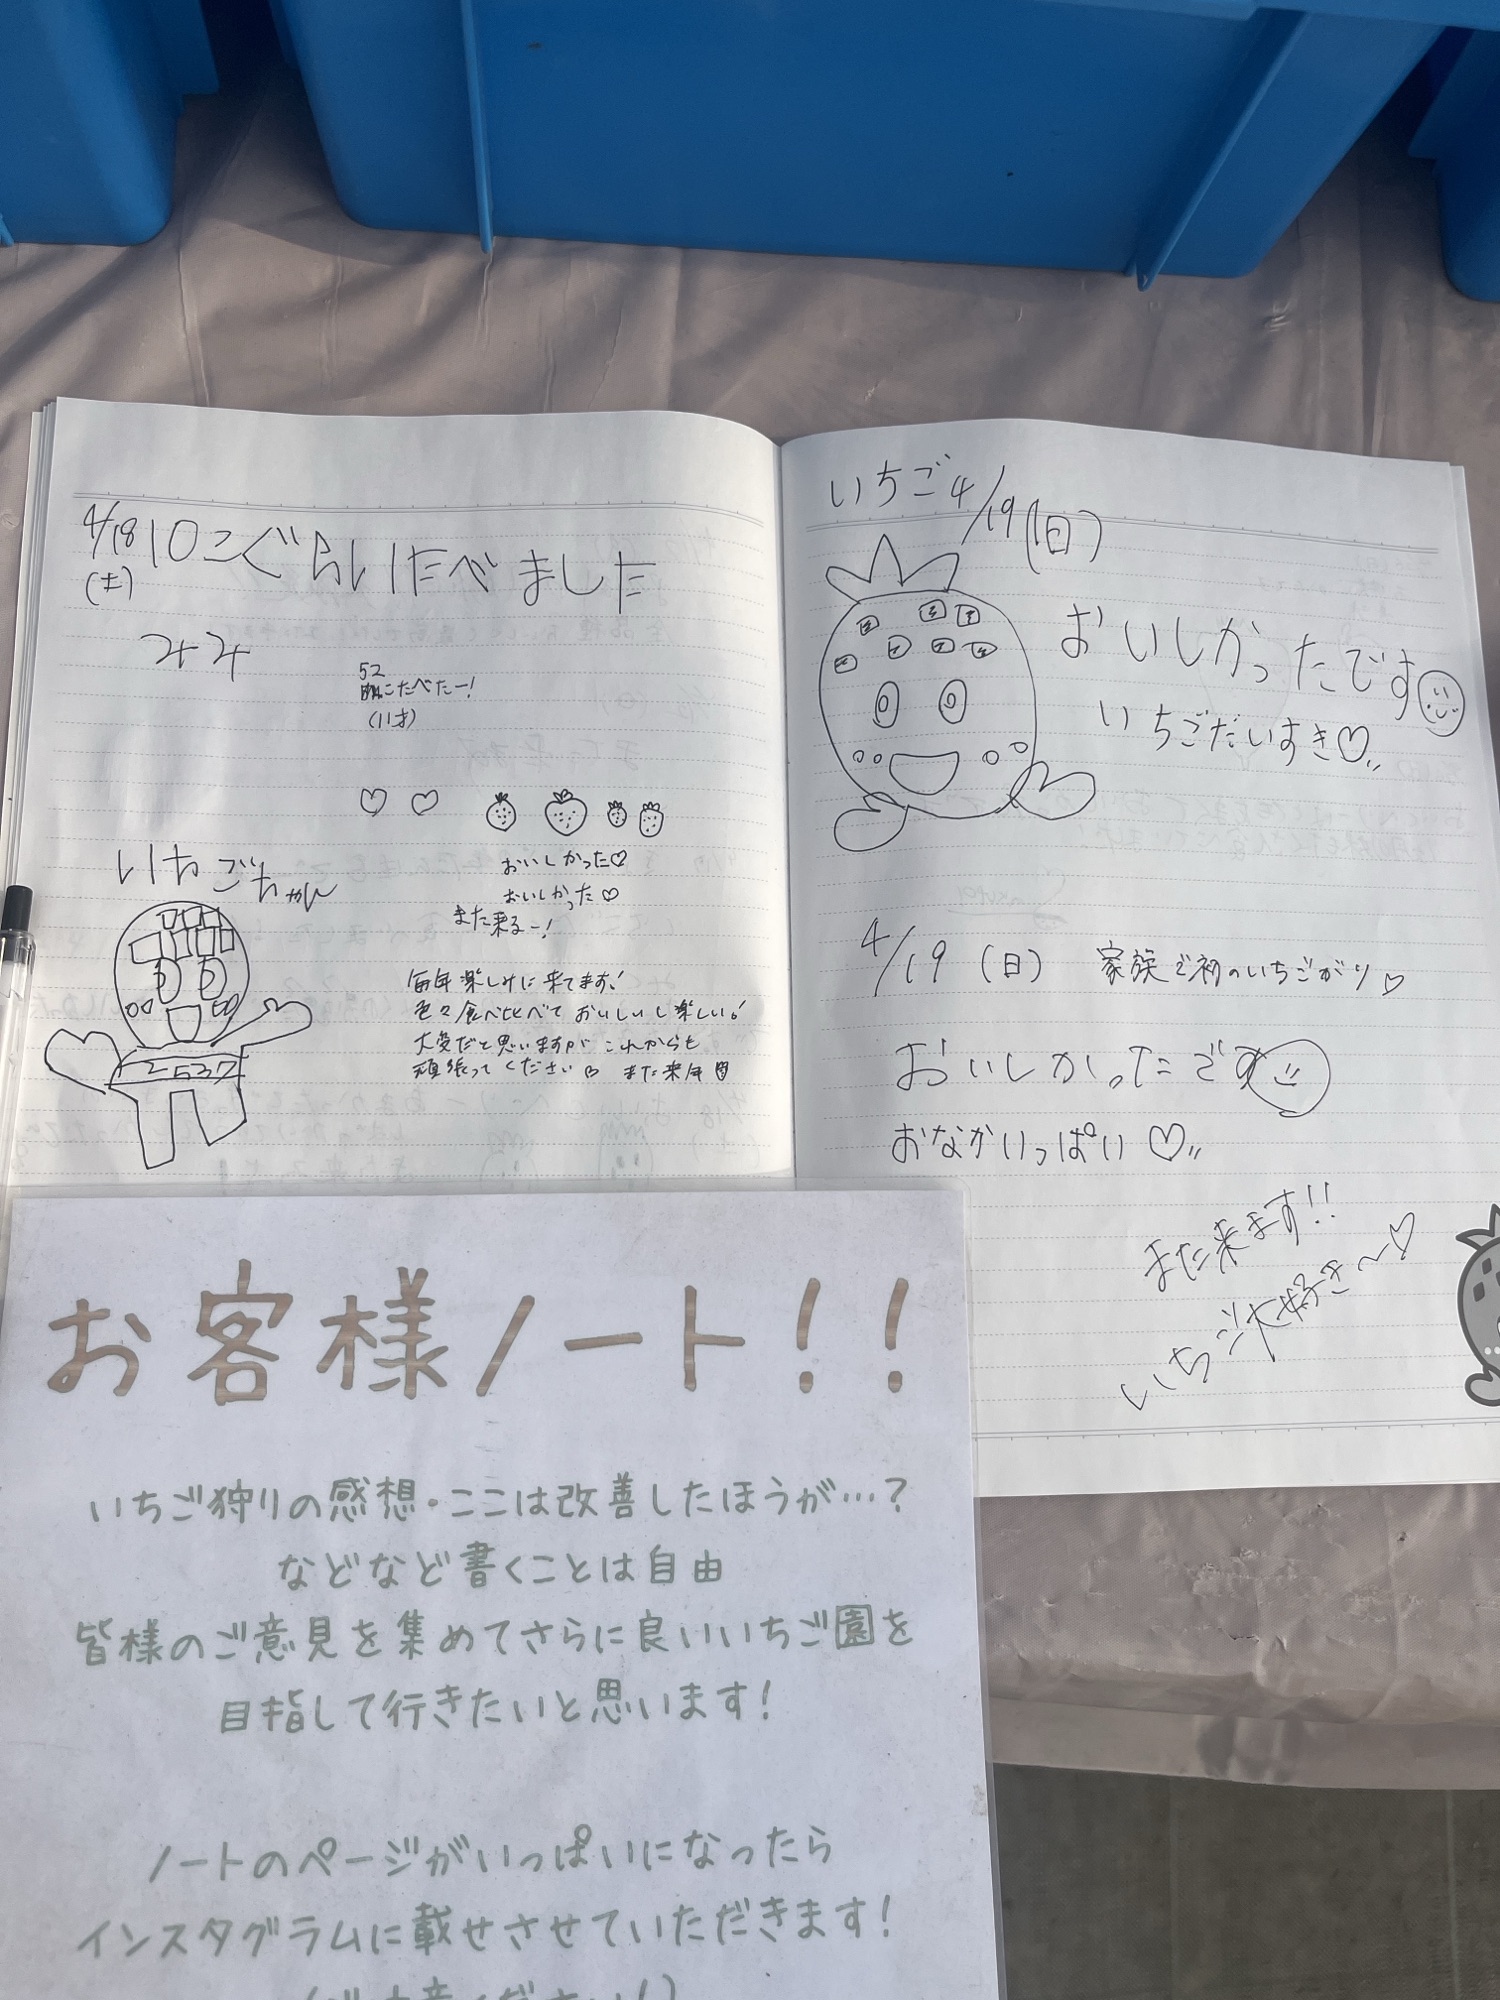 4/18
(土)
10こぐらいたべました
52
こたべたー!
(11才)
いちごちゃん
おいしかった♡
おいしかった♡
また来るー!
毎年楽しみに来てます!
色々食べ比べて おいしいし楽しい!
大変だと思いますが これからも
頑張ってください また来年
いちご 4/19(日)
おいしかったです
いちごだいすき♡
4/19 (日) 家族で初のいちごがり♡
おいしかったです
おなかいっぱい♡
また来ます!!
いちご大好き〜♡
お客様ノート!!
いちご狩りの感想・ここは改善したほうが…?
などなど書くことは自由
皆様のご意見を集めてさらに良いいちご園を
目指して行きたいと思います!
ノートのページがいっぱいになったら
インスタグラムに載せさせていただきます!